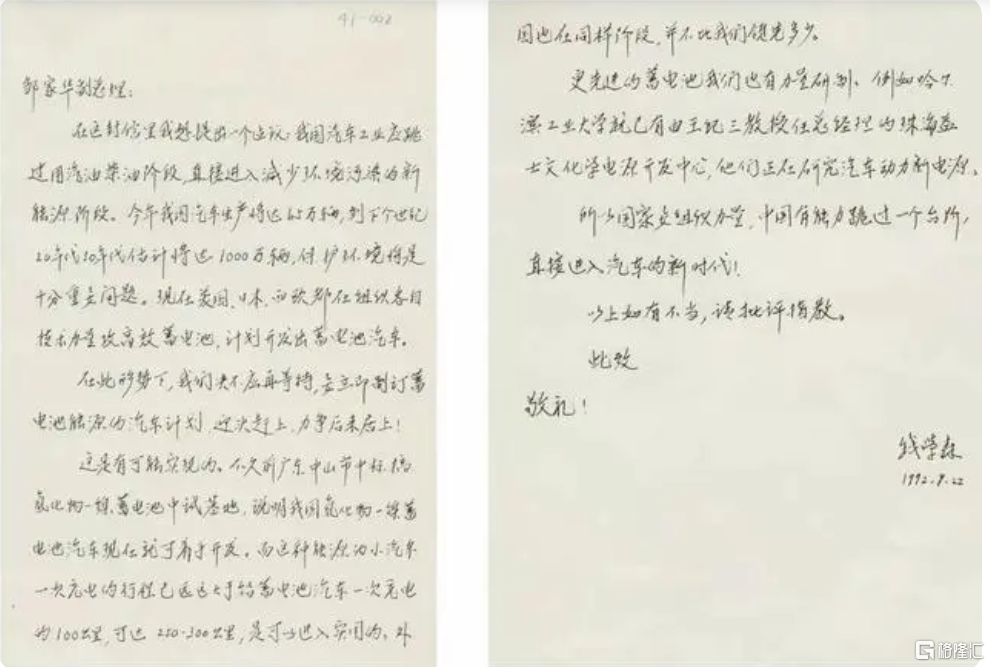 41-002
邹家华副总理：
在这封信里我想提出一个建议：我国汽车工业应跳
过用汽油柴油阶段，直接进入减少环境污染的新
能源阶段。今年我国汽车生产将达 万辆，到下个世纪
20年代30年代估计将达1000万辆，保护环境将是
十分重要问题。现在美国、日本、西欧都在组织各自
技术力量攻高效蓄电池，计划开发出蓄电池汽车。
在此形势下，我们决不应再等待，要立即制订蓄
电池能源的汽车计划，迎头赶上，力争后来居上！
这是有可能实现的。不久前广东中山市中标，搞
氢化物—镍蓄电池中试基地，说明我国氢化物—镍蓄
电池汽车现在就可着手开发。而这种能源的小汽车
一次充电的行程已远远大于铅蓄电池汽车一次充电
的100公里，可达250-300公里，是可以进入实用的。外
国也在同样阶段，并不比我们领先多少。
更先进的蓄电池我们也有力量研制。例如哈尔
滨工业大学就已有由王纪三教授任总经理的珠海益
士文化学电源开发中心，他们正在研究汽车动力新电源。
所以国家要组织力量，中国有能力跳过一个台阶，
直接进入汽车的新时代！
以上如有不当，请批评指教。
此致
敬礼！
钱学森
1992.8.22
格隆汇